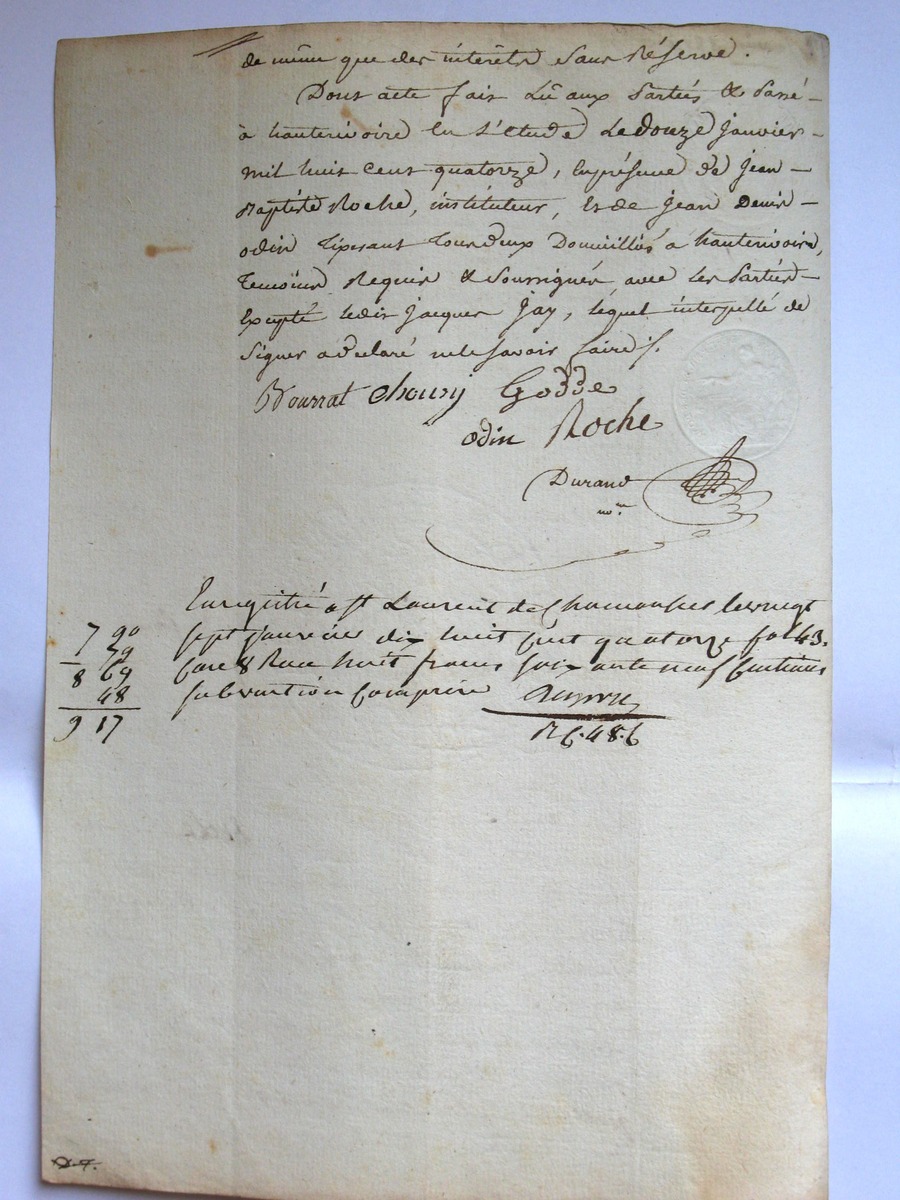 de même que des intérêts sans réserve.
Dont acte fait Lû aux parties & passé
à hauterivoire en L'étude Le douze janvier
mil huit cent quatorze, en présence de jean
Baptiste Roche, instituteur, et de jean Denis
odin tixerant tous deux Domiciliés à hauterivoire,
temoins Requis & soussignés avec les parties
Excepté ledit jacques jay, lequel interpellé de
signer a déclaré ne le savoir faire /.
Bourrat chouzy Godde
odin Roche
Durand
no.re
Enregistré a st Laurent de Chamousset le vingt
sept janvier dix huit cent quatorze fol 43.
case 8 Reçu huit francs soixante neuf centimes
subvention comprise
7 90
79
8 69
48
9 17
R 6.48.6